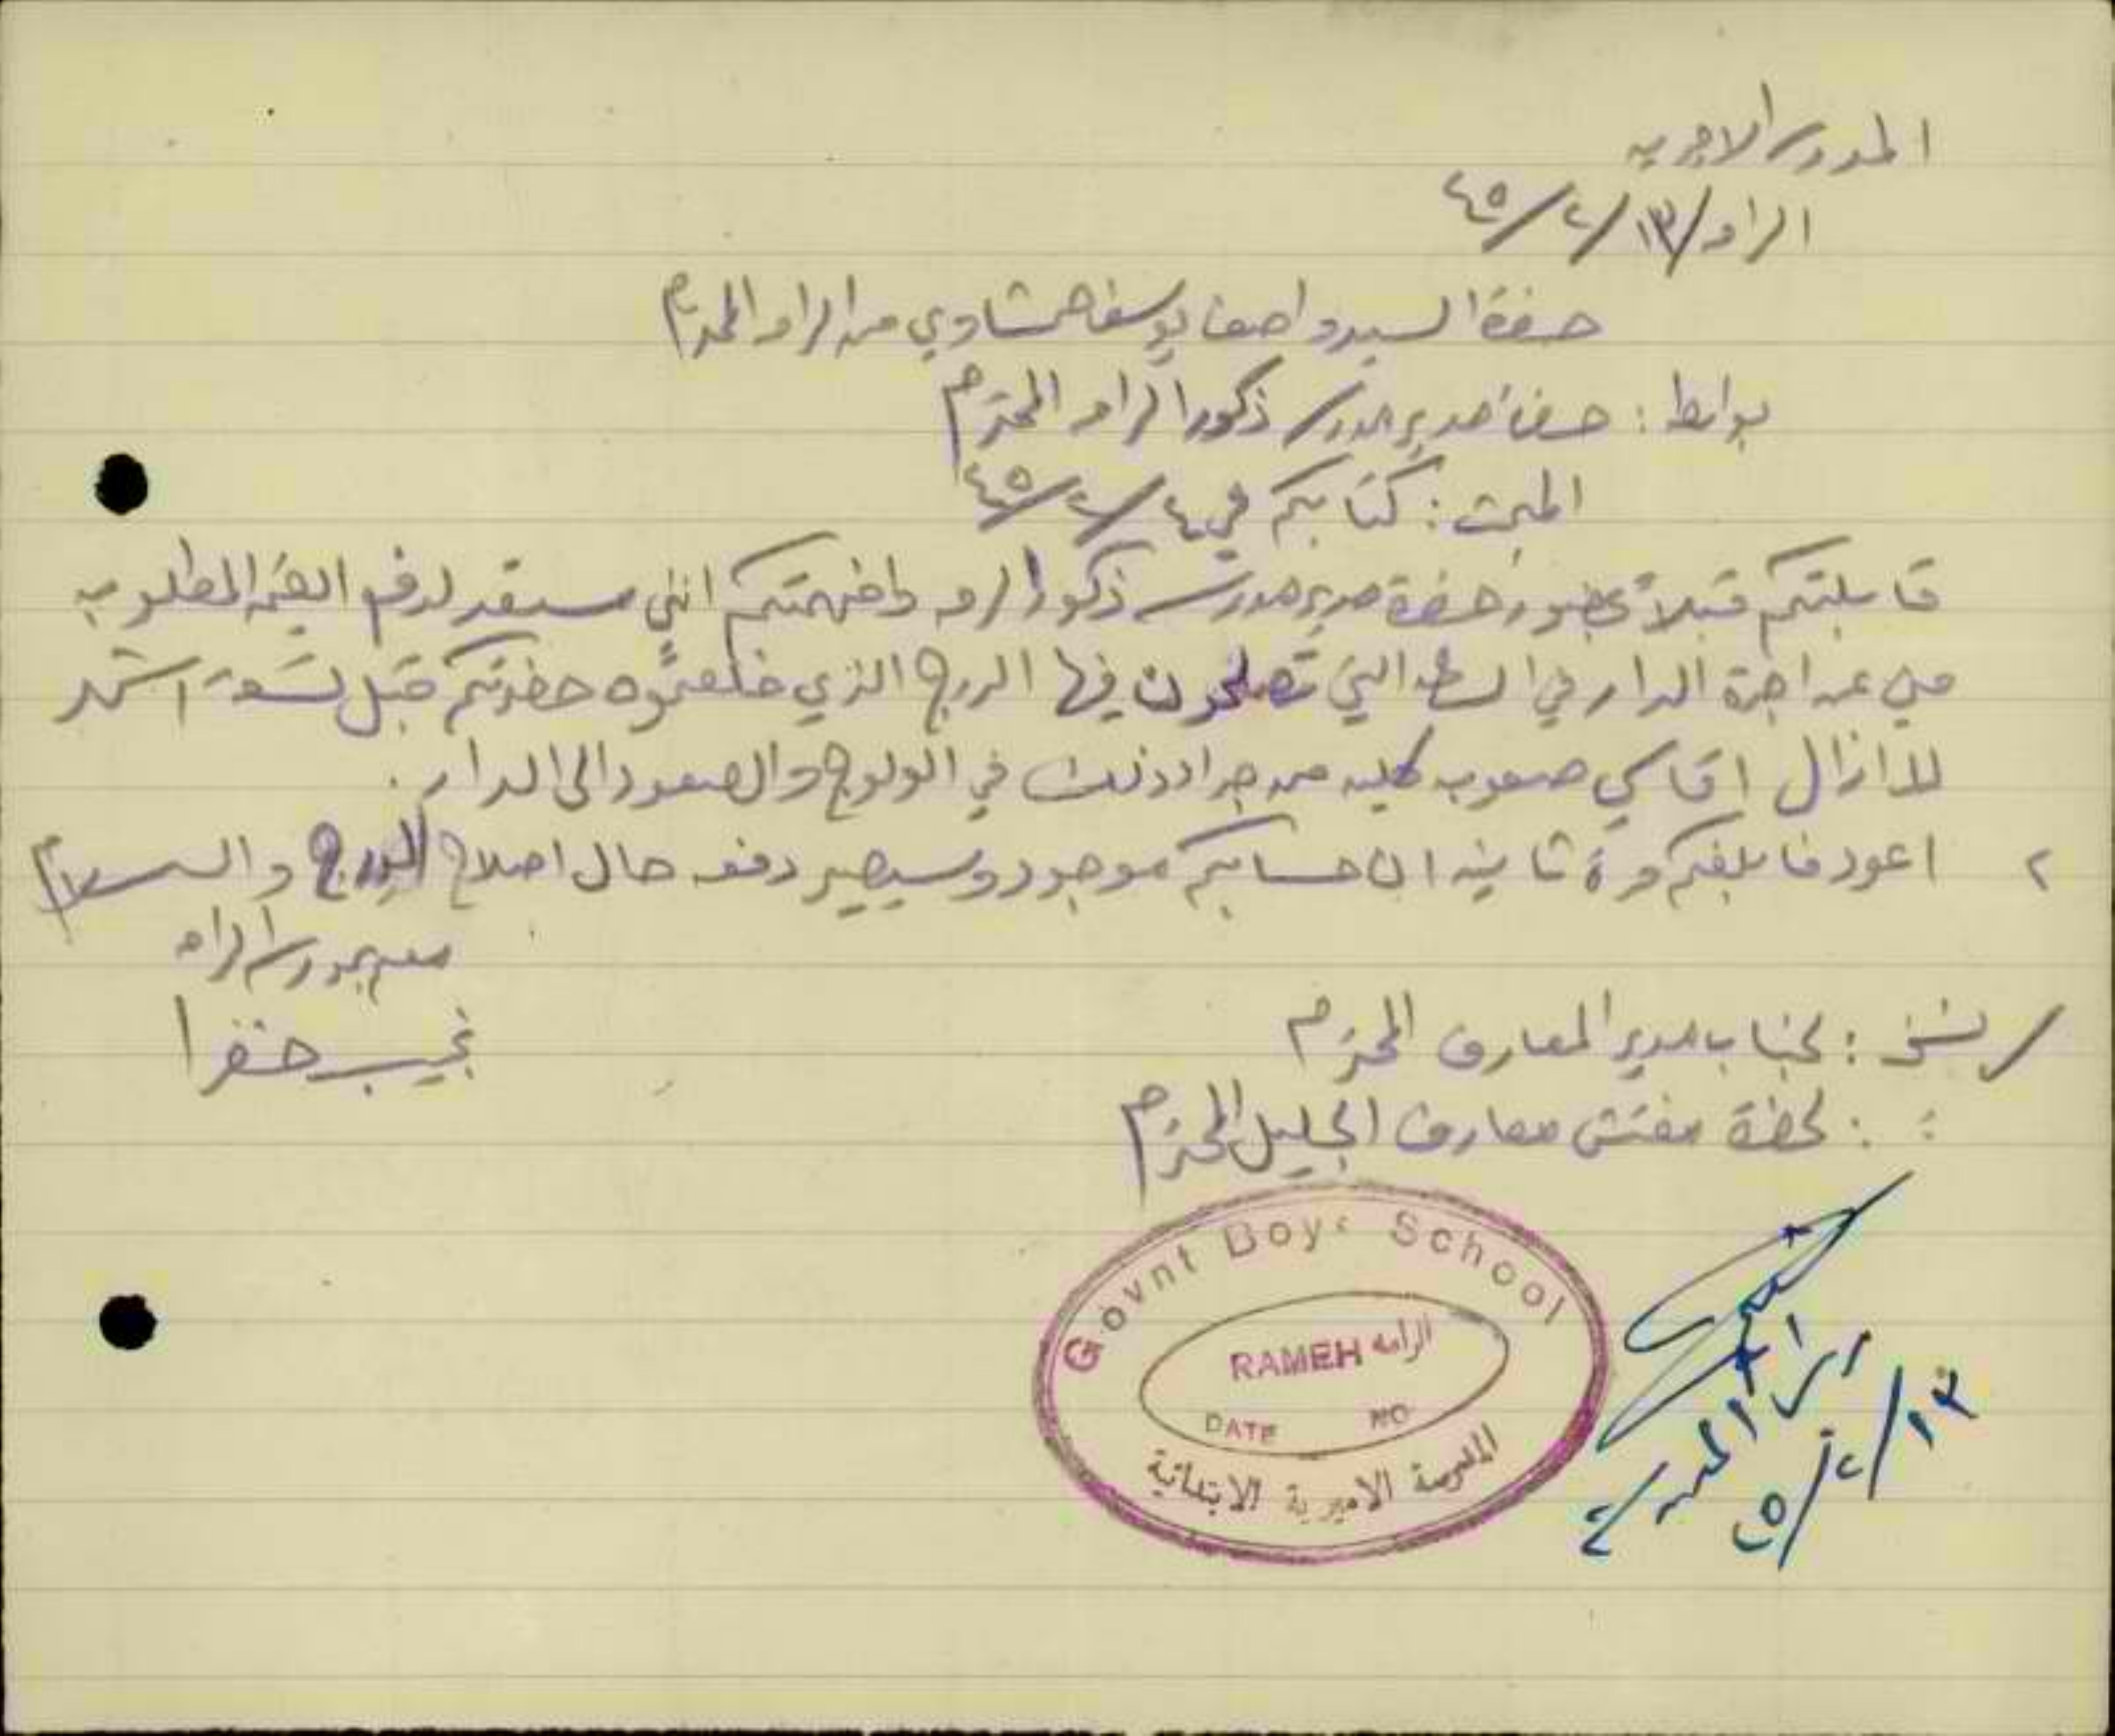 المدرسة الاميرية
الرامه /١٣/٢/٤٥
حضرة السيد واصف يوسف حشاوي من الرامه المحترم
بواسطة : حضرة مدير مدرسة ذكور الرامه المحترم
المبحث : كتابكم في ٤/٢/٤٥
قابلتكم قبلاً بحضور حضرة مدير مدرسة ذكور الرامه وافهمتكم انني مستعد لدفع القيمة المطلوبه
مني عن اجرة الدار في الساعة التي تصلحون فيها الدرج الذي خلعتموه حضرتكم قبل تسعة اشهر
للا ازال اقاسي صعوبه كليه من جراء ذلك في الولوج والصعود الى الدار .
٢ اعود فابلغكم مرة ثانيه ان حسابكم موجود وسيصير دفعه حال اصلاح الدرج والسلام
معلم بمدرسة الرامه
نجيب خضرا
/ نسخة : لجناب مدير المعارف المحترم
: : لحضرة مفتش معارف الجليل المحترم
Govnt Boys School
RAMEH الرامه
DATE NO
المدرسة الاميرية الابتدائية
مدير المدرسة
١٣/٢/٤٥